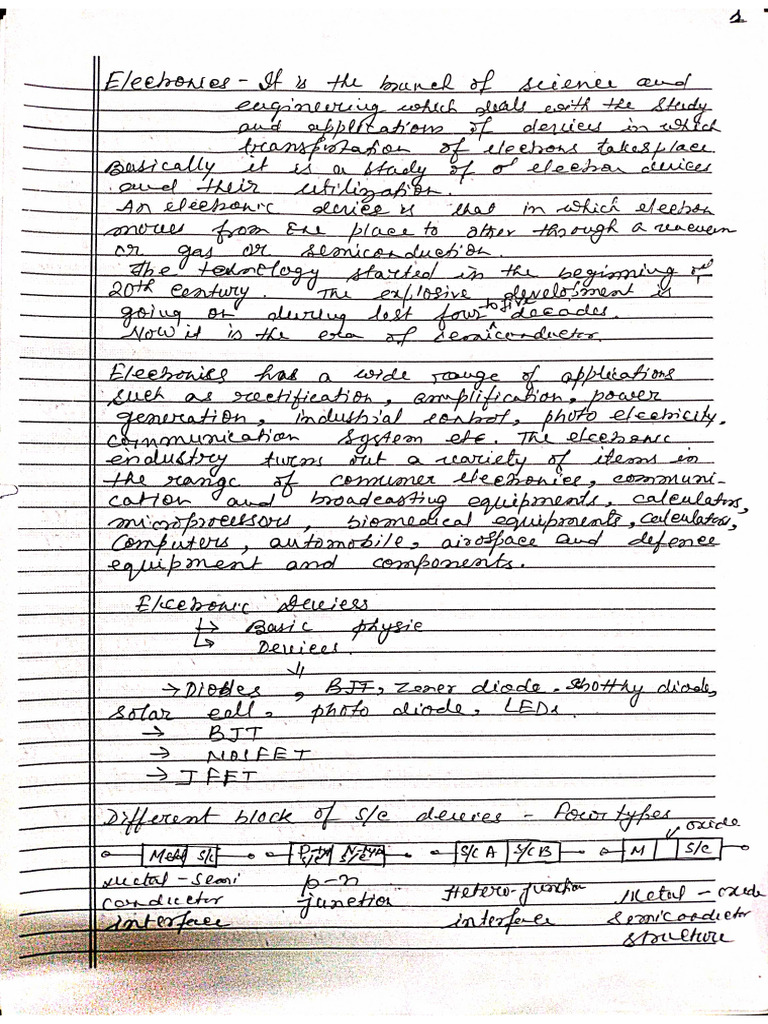 1
Electronics - It is the branch of science and
engineering which deals with the study
and applications of devices in which
transportation of electrons takes place.
Basically it is a study of of electron devices
and their utilization.
An electronic device is that in which electron
moves from one place to other through a vacuum
or gas or semiconduction.
The technology started in the beginning of
20th century. The explosive development is
going on during last four to five decades.
Now it is the era of semiconductor.
Electronics has a wide range of applications
such as rectification, amplification, power
generation, industrial control, photo electricity,
communication system etc. The electronic
industry turns out a variety of items in
the range of consumer electronics, communi-
cation and broadcasting equipments, calculators,
microprocessors, biomedical equipments, calculators,
computers, automobile, airospace and defence
equipment and components.
Electronic Devices
→ Basic physic
→ Devices
⇓
→ Diodes, BJT, zener diode, shottky diode,
solar cell, photo diode, LEDs.
→ BJT
→ MOSFET
→ JFET
Different block of s/c devices - Four types
oxide
Metal s/c p-type s/c N-type s/c S/C A S/C B M s/c
Metal-semi p-n Hetero-junction Metal-oxide
conductor junction interface semiconductor
interface structure